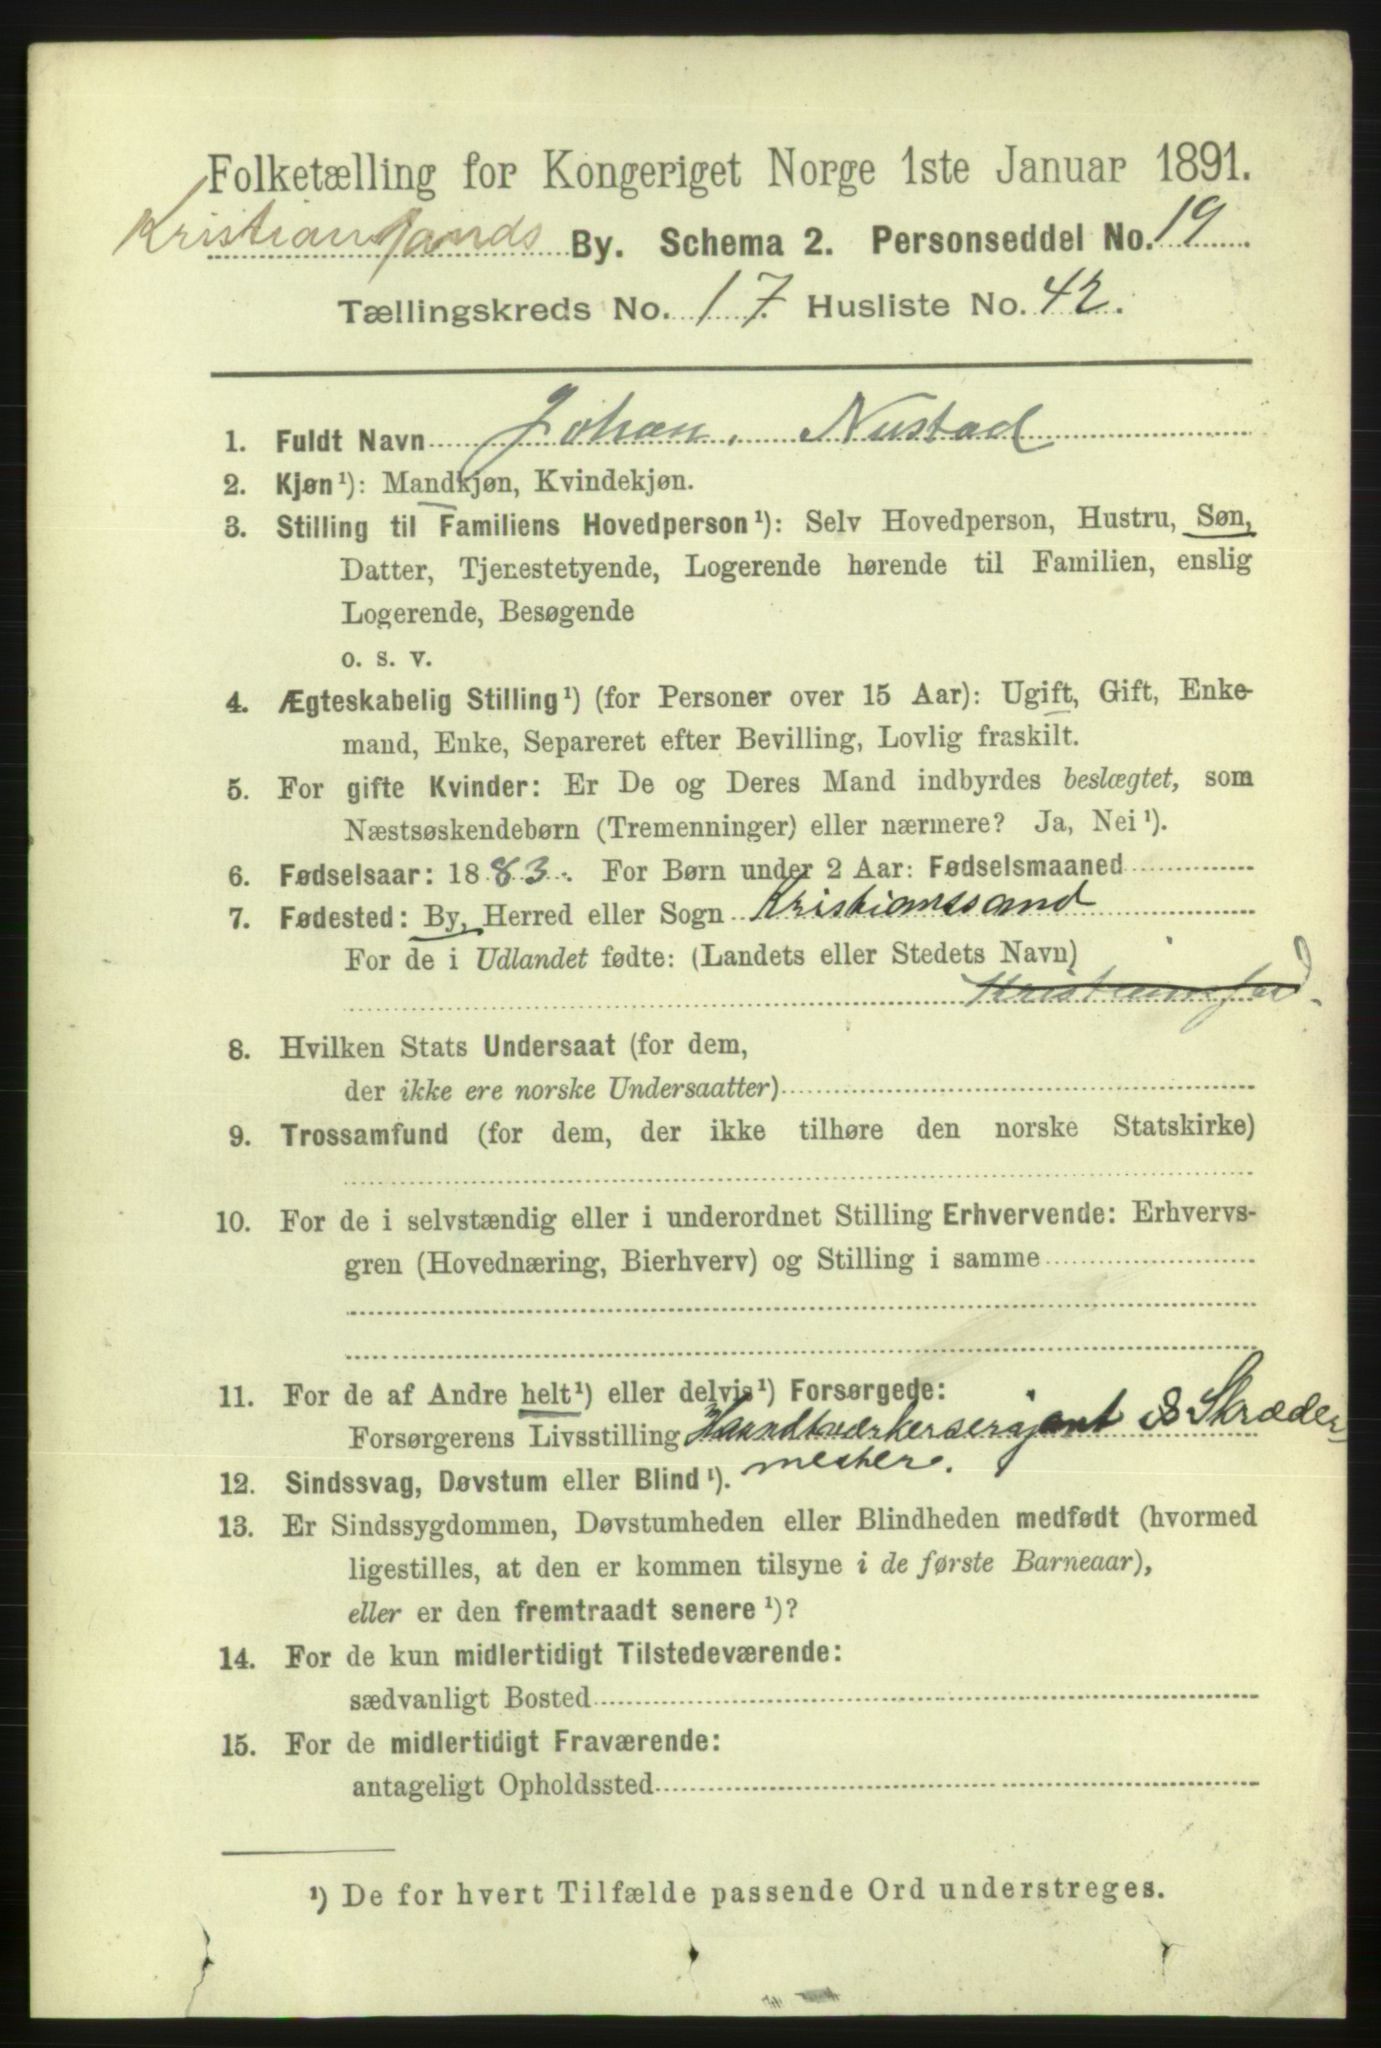 Folketælling for Kongeriget Norge 1ste Januar 1891.
Kristianssands By. Schema 2. Personseddel No. 19
Tællingskreds No. 17. Husliste No. 42.
1. Fuldt Navn Johan, Nustad
2. Kjøn¹): Mandkjøn, Kvindekjøn.
3. Stilling til Familiens Hovedperson¹): Selv Hovedperson, Hustru, Søn,
Datter, Tjenestetyende, Logerende hørende til Familien, enslig
Logerende, Besøgende
o. s. v.
4. Ægteskabelig Stilling¹) (for Personer over 15 Aar): Ugift, Gift, Enke-
mand, Enke, Separeret efter Bevilling, Lovlig fraskilt.
5. For gifte Kvinder: Er De og Deres Mand indbyrdes beslægtet, som
Næstsøskendebørn (Tremenninger) eller nærmere? Ja, Nei¹).
6. Fødselsaar: 1883. For Børn under 2 Aar: Fødselsmaaned
7. Fødested: By, Herred eller Sogn Kristianssand
For de i Udlandet fødte: (Landets eller Stedets Navn)
8. Hvilken Stats Undersaat (for dem,
der ikke ere norske Undersaatter)
9. Trossamfund (for dem, der ikke tilhøre den norske Statskirke)
10. For de i selvstændig eller i underordnet Stilling Erhvervende: Erhvervs-
gren (Hovednæring, Bierhverv) og Stilling i samme
11. For de af Andre helt¹) eller delvis¹) Forsørgede:
Forsørgerens Livsstilling Haandtværkersersjant & Skræder
mester.
12. Sindssvag, Døvstum eller Blind¹).
13. Er Sindssygdommen, Døvstumheden eller Blindheden medfødt (hvormed
ligestilles, at den er kommen tilsyne i de første Barneaar),
eller er den fremtraadt senere¹)?
14. For de kun midlertidigt Tilstedeværende:
sædvanligt Bosted
15. For de midlertidigt Fraværende:
antageligt Opholdssted
¹) De for hvert Tilfælde passende Ord understreges.